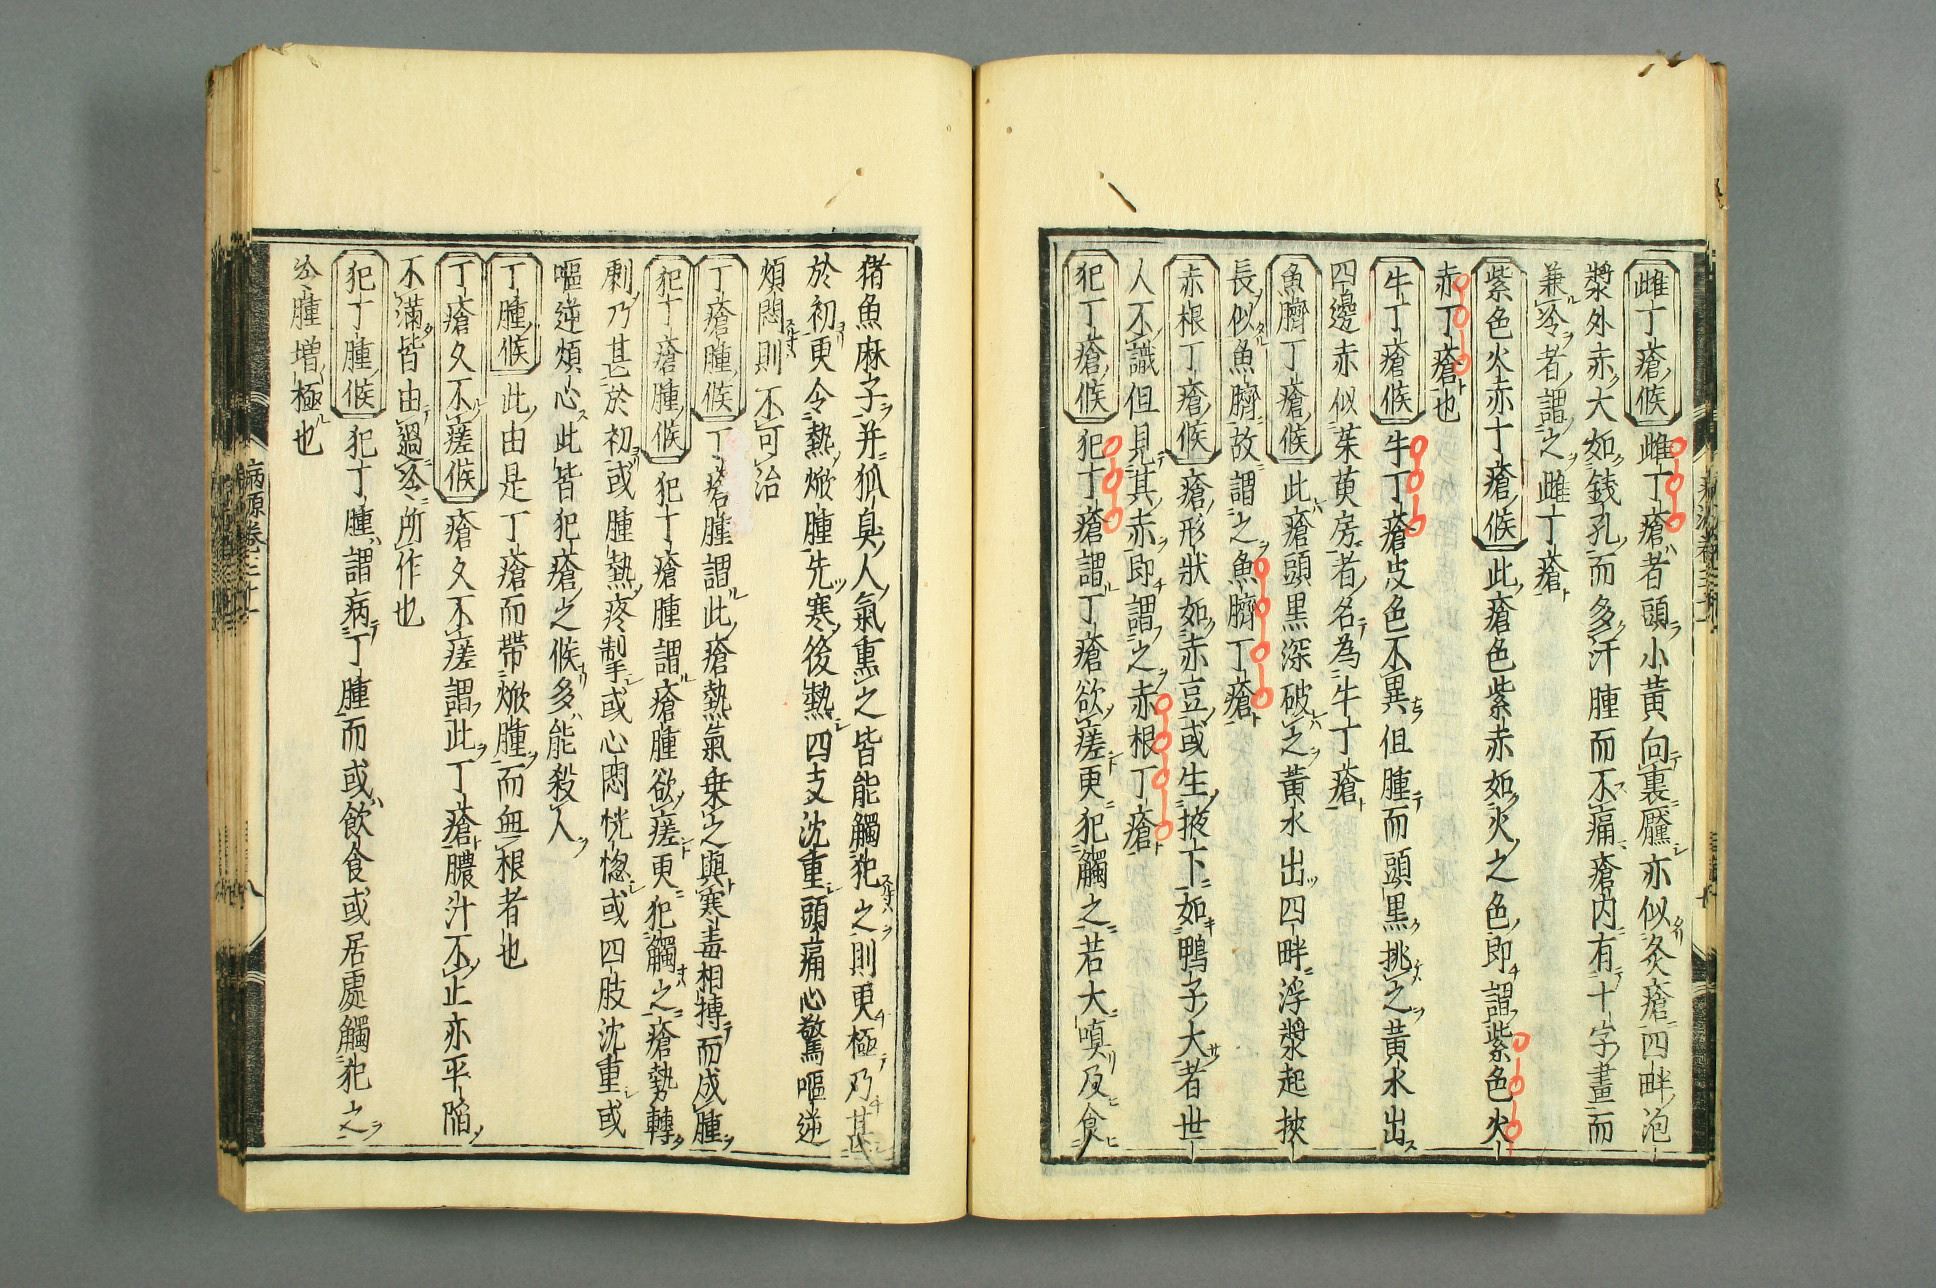 雌丁瘡候 雌丁瘡者頭小黄向裏黶亦似灸瘡四畔泡
漿外赤大如銭孔而多汗腫而不痛瘡内有十字畫而
兼冷者謂之雌丁瘡
紫色火赤丁瘡候 此瘡色紫赤如火之色即謂紫色火
赤丁瘡也
牛丁瘡候 牛丁瘡皮色不異但腫而頭黒挑之黄水出
四邊赤似茱萸房者名為牛丁瘡
魚臍丁瘡候 此瘡頭黒深破之黄水出四畔浮漿起狹
長似魚臍故謂之魚臍丁瘡
赤根丁瘡候 瘡形狀如赤豆或生掖下如鴨子大者世
人不識但見其赤即謂之赤根丁瘡
犯丁瘡候 犯丁瘡謂丁瘡欲瘥更犯觸之若大嗔及食
猪魚麻子并狐臭人氣熏之皆能觸犯之則更極乃甚
於初更令熱焮腫先寒後熱四支沈重頭痛心驚嘔逆
煩悶則不可治
丁瘡腫候 丁瘡腫謂此瘡熱氣乗之與寒毒相搏而成腫
犯丁瘡腫候 犯丁瘡腫謂瘡腫欲瘥更犯觸之瘡勢轉
劇乃甚於初或腫熱疼掣或心悶恍惚或四肢沈重或
嘔逆煩心此皆犯瘡之候多能殺人
丁腫候 此由是丁瘡而帶焮腫而無根者也
丁瘡久不瘥候 瘡久不瘥謂此丁瘡膿汁不止亦平陷
不滿皆由過冷所作也
犯丁腫候 犯丁腫謂病丁腫而或飲食或居處觸犯之
令腫増極也
病源卷三十一
八